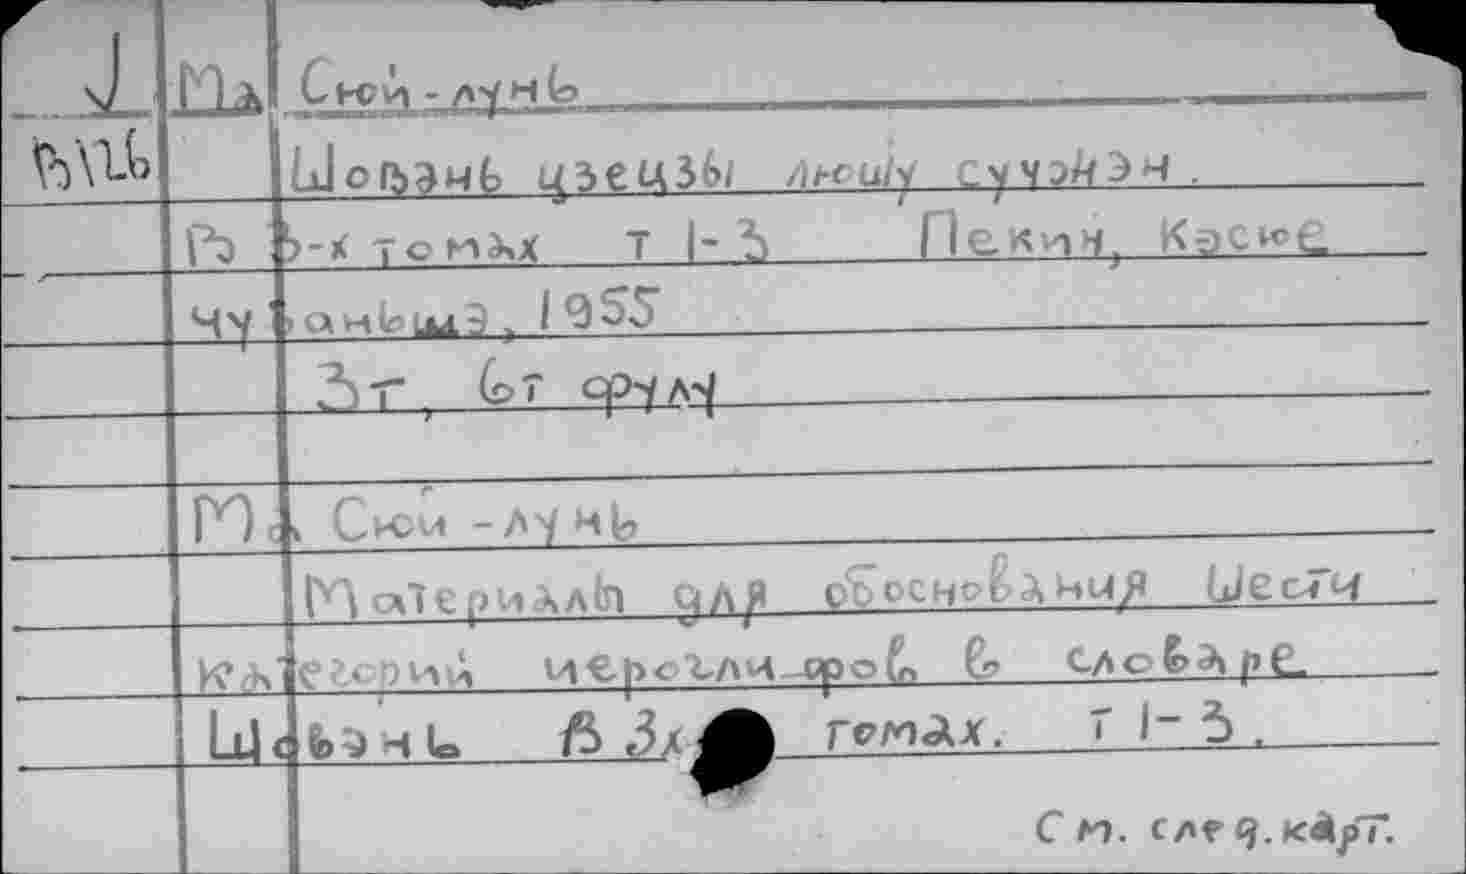 J Ма Сюй-лунь
ВИЬ Шовэнь цзецзы люшу сучжэн.
В 3-х томах т 1-3 Пекин, Кэсюе
чубаньшэ, 1955
3т, 6т фулу
Ма Сюй-лунь
Материалы для обоснования шести
категорий иероглифов в словаре
Шовэнь В 3х томах. т 1-3.
См. след.карт.